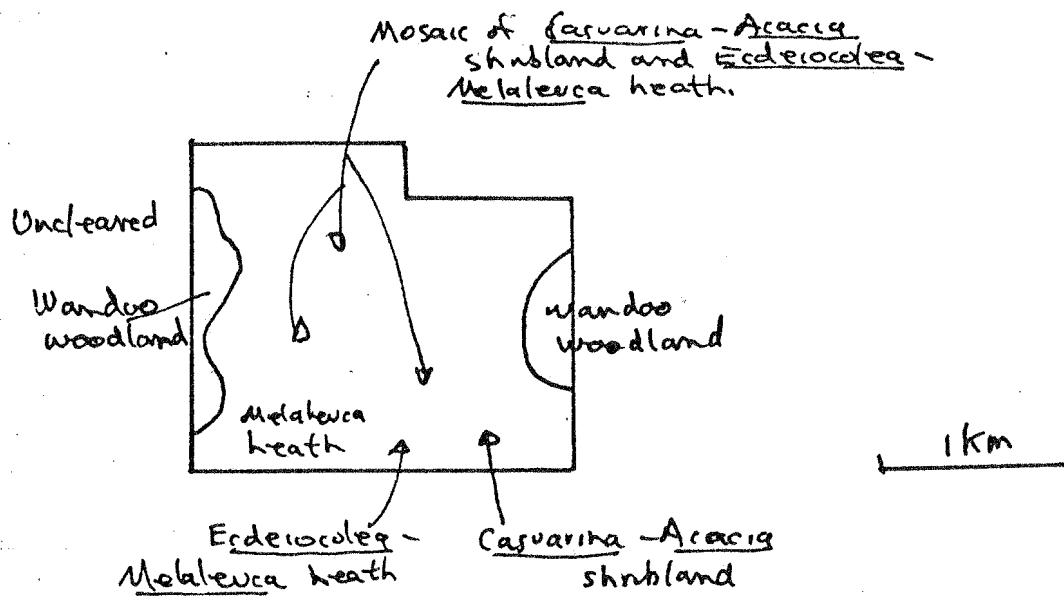 Mosaic of Casuarina - Acacia
shrubland and Ecdeiocolea -
Melaleuca heath.
Uncleared
Wandoo
woodland
wandoo
woodland
Melaleuca
heath
1 km
Ecdeiocolea -
Melaleuca heath
Casuarina - Acacia
shrubland